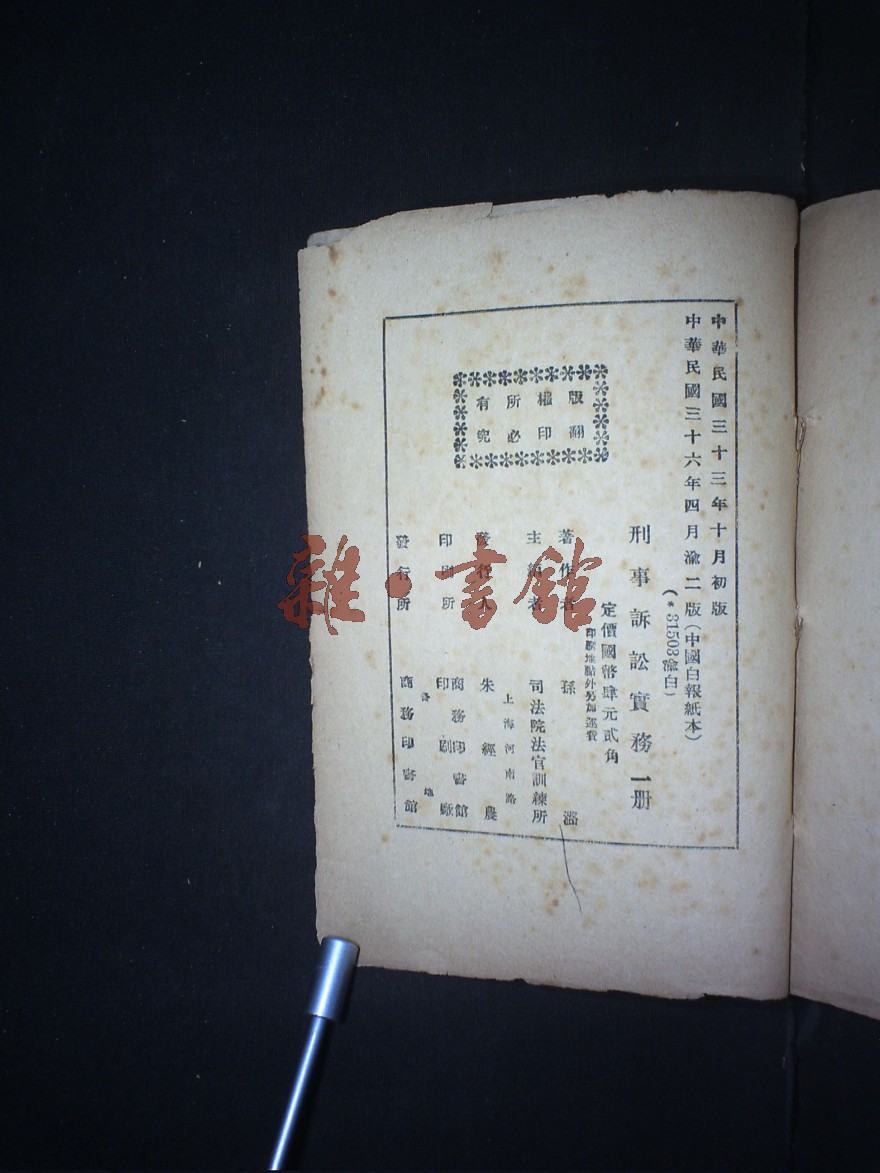 中華民國三十三年十月初版
中華民國三十六年四月渝二版(中國白報紙本)
(*31503渝白)
刑事訴訟實務一册
定價國幣肆元貳角
印刷地點外另加運費
著作者 孫潞
主編者 司法院法官訓練所
上海河南路
發行人 朱經農
印刷所 商務印書館
印刷廠
發行所 各地
商務印書館
版權所有
翻印必究
雜·書館